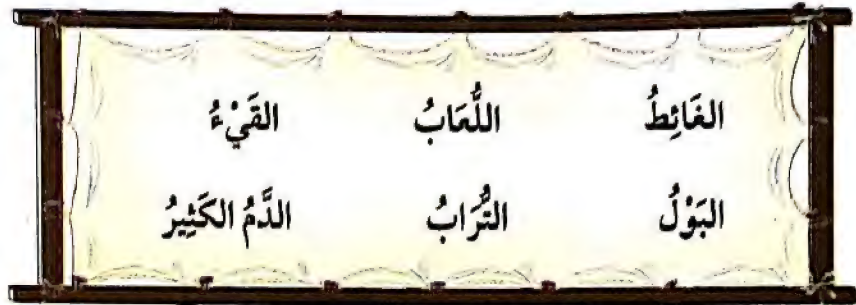 الغَائِطُ اللُّعَابُ القَيْءُ
البَوْلُ التُّرَابُ الدَّمُ الكَثِيرُ